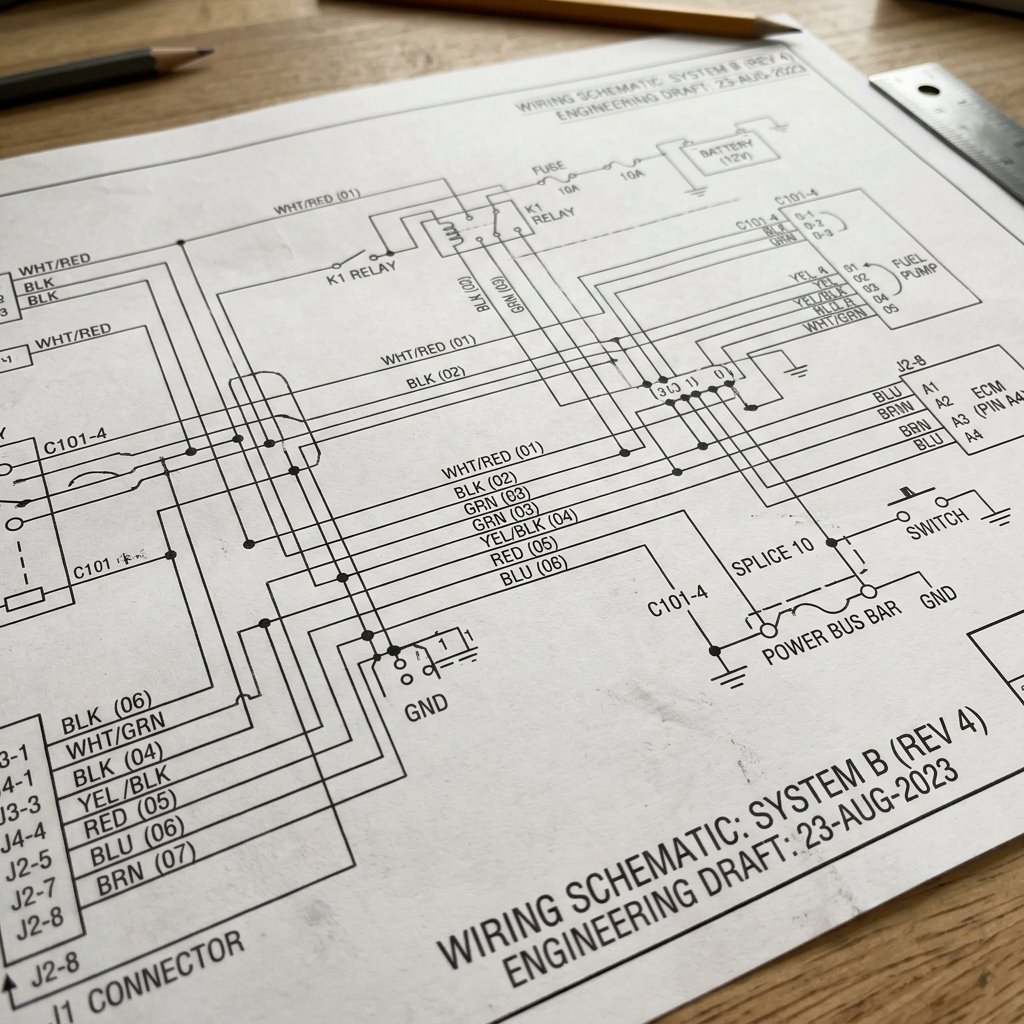 WIRING SCHEMATIC: SYSTEM B (REV 4)
ENGINEERING DRAFT: 23-AUG-2023
BATTERY
(12V)
FUSE
10A
10A
WHT/RED (01)
K1
RELAY
K1 RELAY
C101-4
C101-4
BLK
GRN
0-1
0-2
0-3
FUEL
PUMP
WHT/RED
BLK
BLK
3
BLK (02)
GRN (03)
YEL
YEL
YEL/BLK
WHT/GRN
01
02
03
04
05
WHT/RED
WHT/RED (01)
BLK (02)
J2-8
BLU
BRN
BLU
A1
A2
A3
A4
ECM
(PIN A4)
C101-4
WHT/RED (01)
BLK (02)
GRN (03)
GRN (03)
YEL/BLK (04)
RED (05)
BLU (06)
SWITCH
SPLICE 10
C101
C101-4
GND
POWER BUS BAR
1
1
GND
BLK (06)
WHT/GRN
BLK (04)
YEL/BLK
RED (05)
BLU (06)
BRN (07)
3-1
4-1
J3-3
J4-4
J2-5
J2-7
J2-8
J2-8
J1 CONNECTOR
WIRING SCHEMATIC: SYSTEM B (REV 4)
ENGINEERING DRAFT: 23-AUG-2023